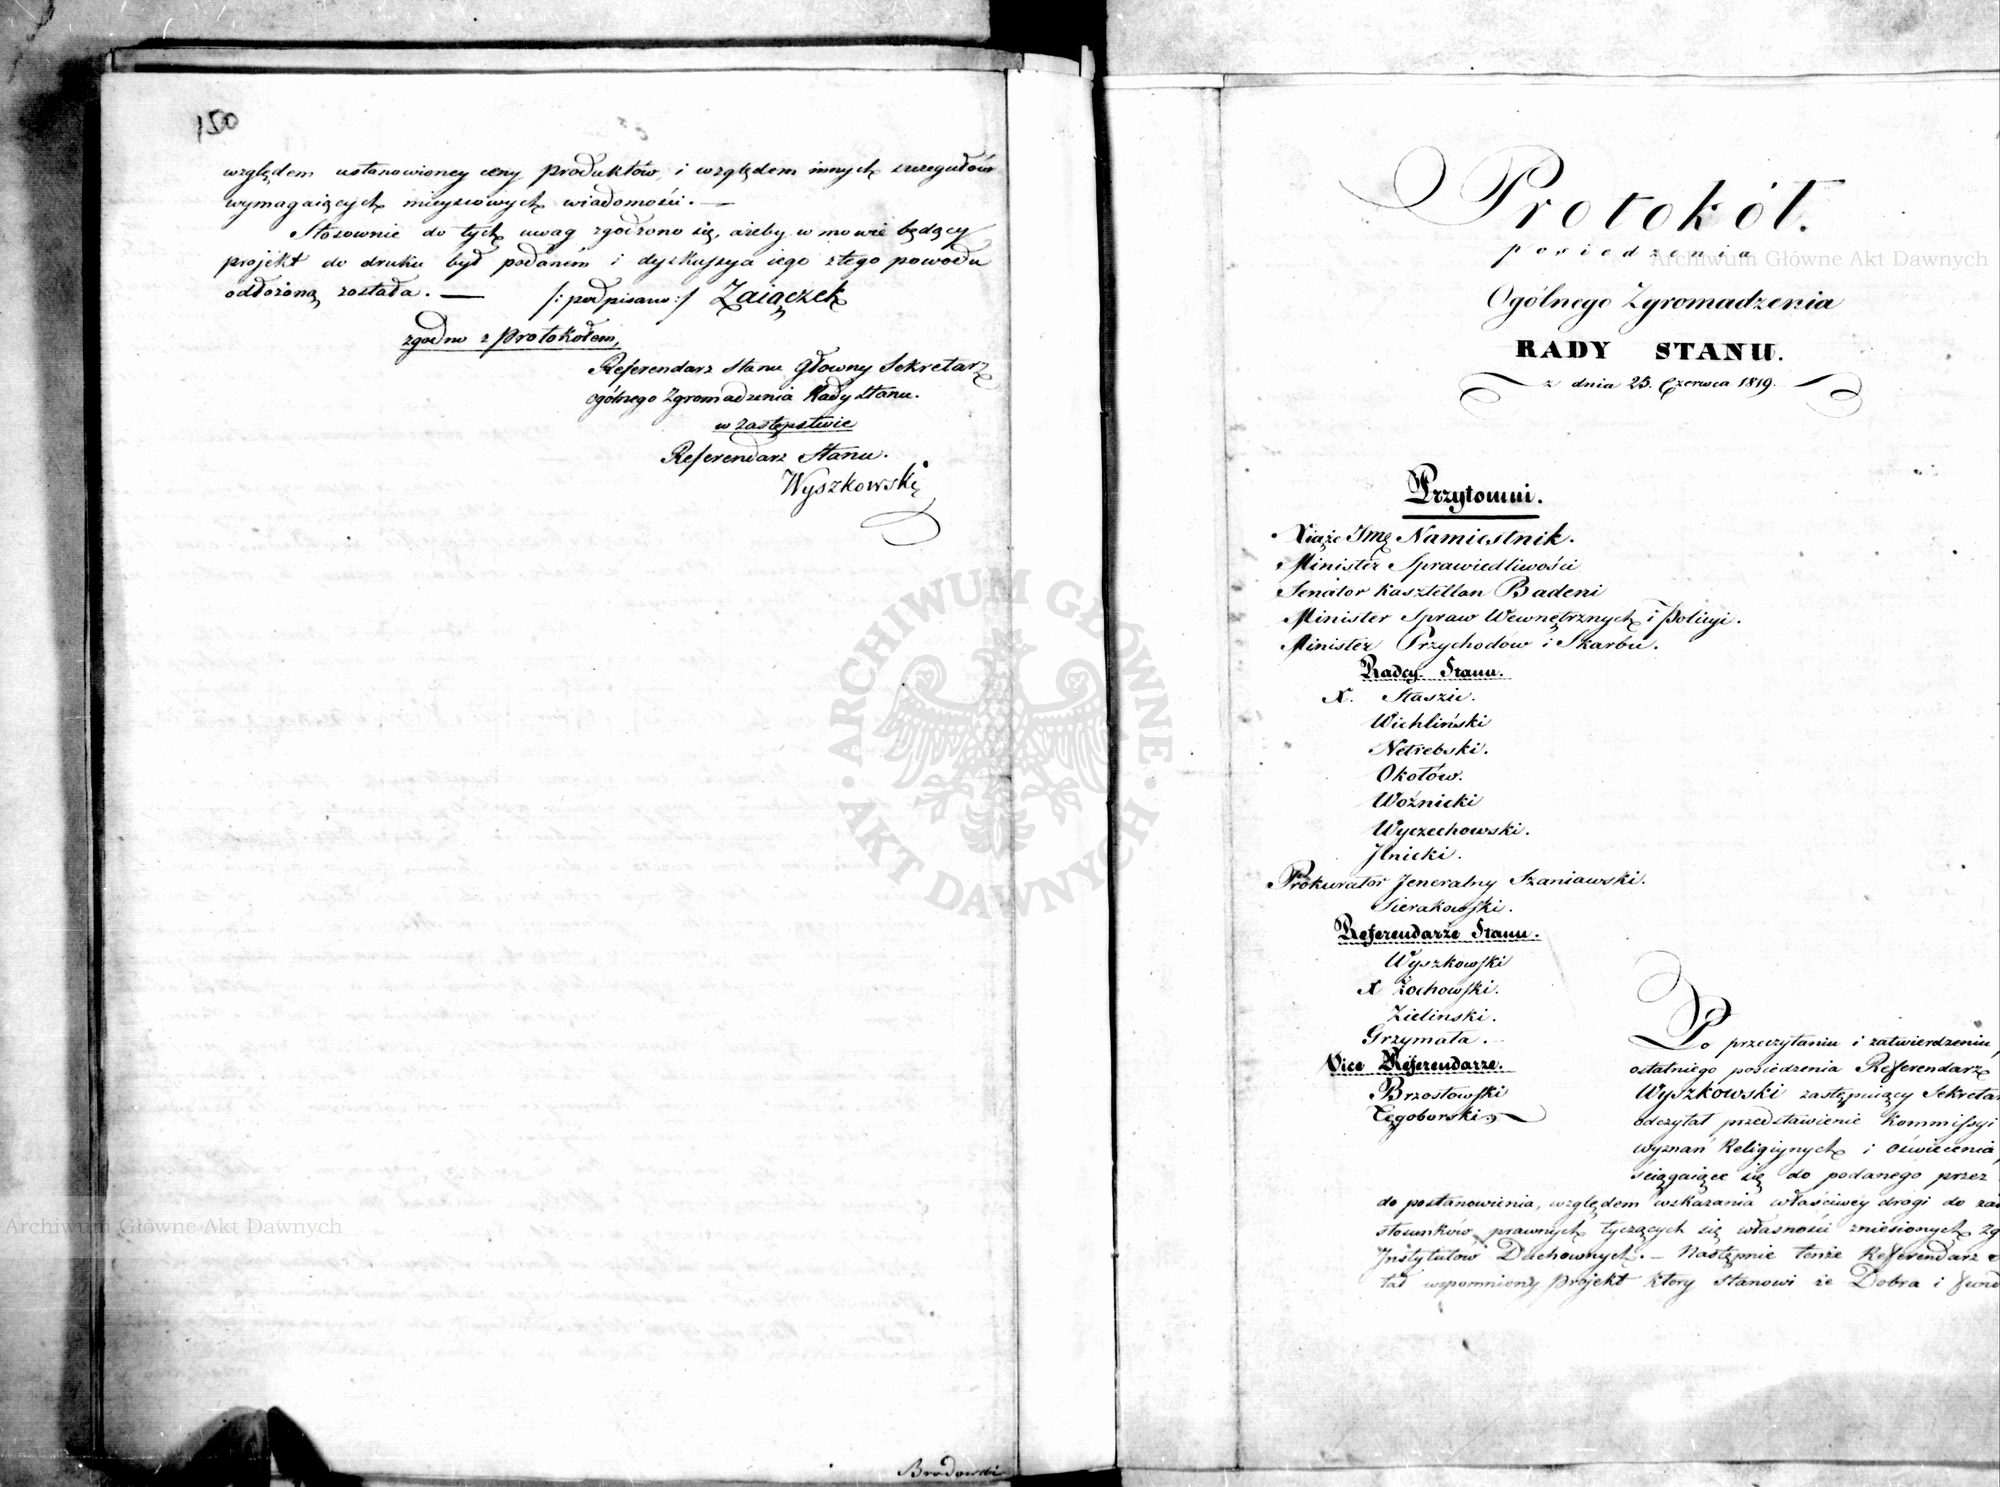 120
względem ustanowioney ceny produktów, i względem innych szczegułów
wymagaiących mieyscowych wiadomości. —
Stosownie do tych uwag zgodzono się, ażeby w mowie będący
projekt do druku był podanem i dyskussya iego z tego powodu
odłożoną została. — /: podpisano :/ Zaiączek
zgodno z Protokołem,
Referendarz Stanu Głowny Sekretarz
ogólnego Zgromadzenia Rady Stanu.
w zastępstwie
Referendarz Stanu.
Wyszkowski
Brodowski
Protokół.
posiedzenia
Ogólnego Zgromadzenia
RADY STANU.
z dnia 25. Czerwca 1819.
Przytomni.
Xiąże Jmę Namiestnik.
Minister Sprawiedliwości
Senator Kasztellan Badeni
Minister Spraw Wewnętrznych i Policyi.
Minister Przychodów i Skarbu.
Radcy Stanu.
X. Staszic.
Wichliński
Netrebski.
Okołów.
Woźnicki
Wyczechowski.
Jlnicki.
Prokurator Jeneralny Szaniawski.
Sierakowski.
Referendarze Stanu.
Wyszkowski
X Żochowski.
Zielinski.
Grzymała.
Vice Referendarze.
Brzostowski
Tęgoborski
Po przeczytaniu i zatwierdzeniu,
ostatniego posiedzenia Referendarz
Wyszkowski zastępuiący Sekreta
odczytał przedstawienie Kommissyi
wyznań Religiynych i Oświecenia,
ściągaiące się do podanego przez
do postanowienia, względem wskazania właściwéy drogi do za
stosunków prawnych tyczących się własności zniesionych Zg
Instytutow Duchownych. — Następnie tenże Referendarz
tał wspomniony Projekt ktory Stanowi że Dobra i fund
Archiwum Główne Akt Dawnych
Archiwum Główne Akt Dawnych
ARCHIWUM GŁÓWNE · AKT DAWNYCH ·